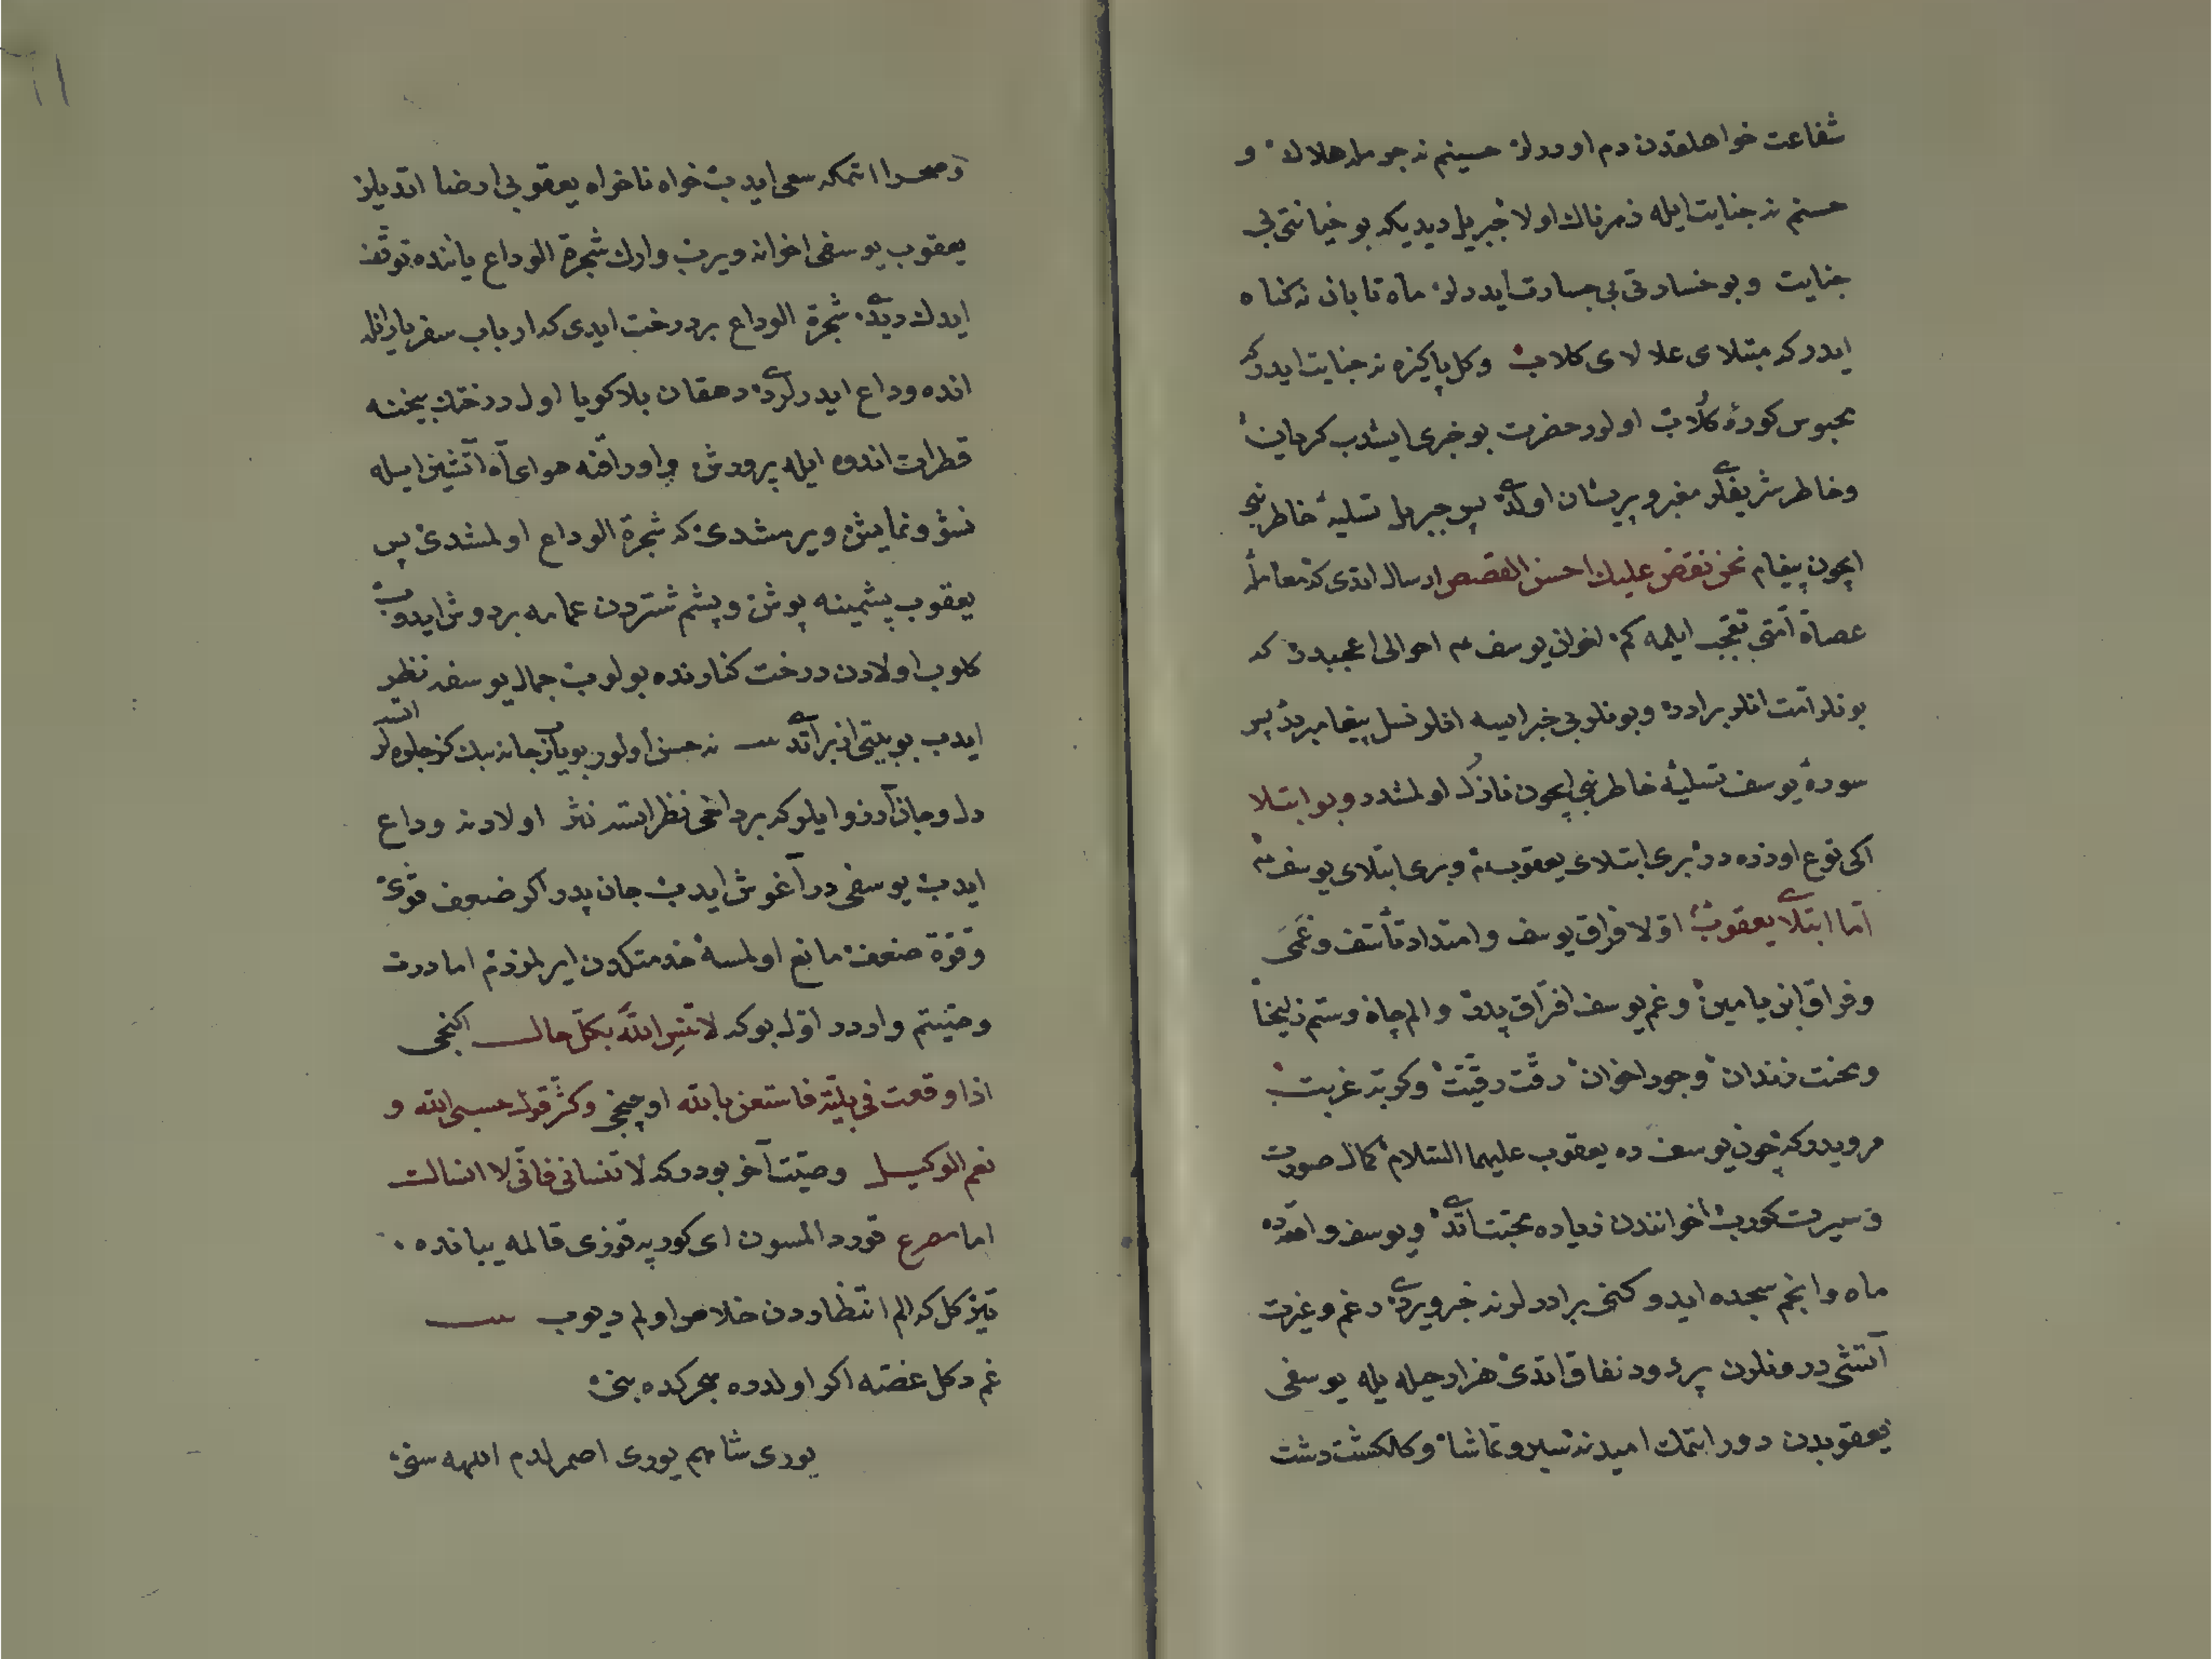 شفاعت خواهلقدن دم اوررلر حسینم نه جرمله هلاك و
حسنم نه جنایت ایله زهرناك اولا جبریل دیدیكه بو خیانتی بی
جنایت و بو خسارتی بی جسارت ایدرلر ماه تابان نه كناه
ایدر كه مبتلای علالای كلاب و كل پاكیزه نه جنایت ایدر كه
محبوس كورهٔ كلاب اولور حضرت بو خبری ایشدب كریان
و خاطر شریفلری مغبر و پریشان اولدی پس جبریل تسلیهٔ خاطرنبی
ایچون پیغام نحن نقص علیك احسن القصص ارسال اتدی كه معاملهٔ
عصاة امتی تعجب ایلمه كم اخوان یوسف احوالی اعجبدر كه
بونلر امت انلر برادر و بونلر بی خبر ایسه انلر نسل پیغامبردر پس
سورهٔ یوسف تسلیهٔ خاطرنبی ایچون نازل اولمشدر و بو ابتلا
اكی نوع اوزره در بری ابتلای یعقوب و بری ابتلای یوسف
اما ابتلای یعقوب اولا فراق یوسف و امتداد تأسف و عمی
و فراق ابن یامین و غم یوسف افتراق پدر و الم چاه و ستم زلیخا
و محنت زندان و جور اخوان رقت رقیت و كربت غربت
مرویدر كه چون یوسف ده یعقوب علیهما السلام كمال صورت
و سیرت كورب اخوانندن زیاده محبت اتدی و یوسف واقعه ده
ماه و انجم سجده ایدر كنی برادرلرنه خبر ویردی غم و غیرت
آتشی درونلرن پر دود نفاق اتدی هزار حیله یله یوسفی
یعقوبدن دور اتمك امیدنه سیر و تماشا و كلكشت دشت
و صحرا اتمكه سعی ایدب خواه ناخواه یعقوبی ارضا اتدیلر
یعقوب یوسفی اخوانه ویرب وارك شجرة الوداع یاننده توقف
ایدك دیدی شجرة الوداع بر درخت ایدی كه ارباب سفر یارانله
انده وداع ایدرلردی دهقان بلا كویا اول درختك بیخنه
قطرات اندوه ایله پرورش و اوراقنه هوای آه آتشین ایله
نشو و نمایش ویرمشدی كه شجرة الوداع اولمشدی پس
یعقوب پشمینه پوش و پشم شتردن عمامه بر دوش ایدوب
كلوب اولادن درخت كنارنده بولوب جمال یوسفه نظر
ایدب بو بیتی ازبر اتدی نه حسن اولور بو یارب جانه بك كز جلوه لر اتسه
دل و جان آرزو ایلر كه بر داخی نظر اتسه نثر اولادنه وداع
ایدب یوسفی در آغوش ایدب جان پدر اكر ضعف قوی
و قوة ضعف مانع اولمسه خدمتكدن ایرلمزدم اما درت
وصیتم واردر اول بو كه لا تنس الله بكل حال اكنجی
اذا وقعت فی بلیة فاستعن بالله اوچنجی و كثر قول حسبی الله و
نعم الوكیل وصیت آخر بودر كه لا تنسانی فانی لا انسالك
اما مصرع قورد المسون ای كور په قوزی قالمه یبانده
تیز كل كه الم انتظاردن خلاص اولم دیوب
غم دكل غصه اكر اولدره هجركده بنی
یوری شاهم یوری اصمرلدم اللهه سنی